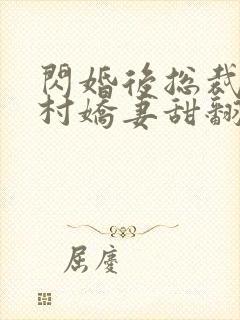 閃婚後總裁
村嬌妻甜翻
屈慶